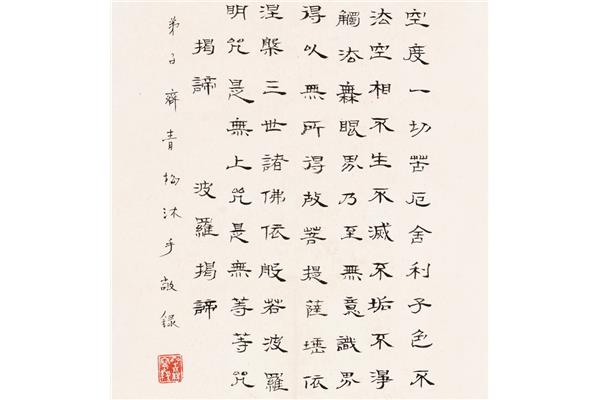 空度一切苦厄舍利子色不
法空相不生不滅不垢不淨
觸法無眼界乃至無意識界
得以無所得故菩提薩埵依
涅槃三世諸佛依般若波羅
明咒是無上咒是無等等咒
揭諦 波羅揭諦
弟子齋青沐手敬錄